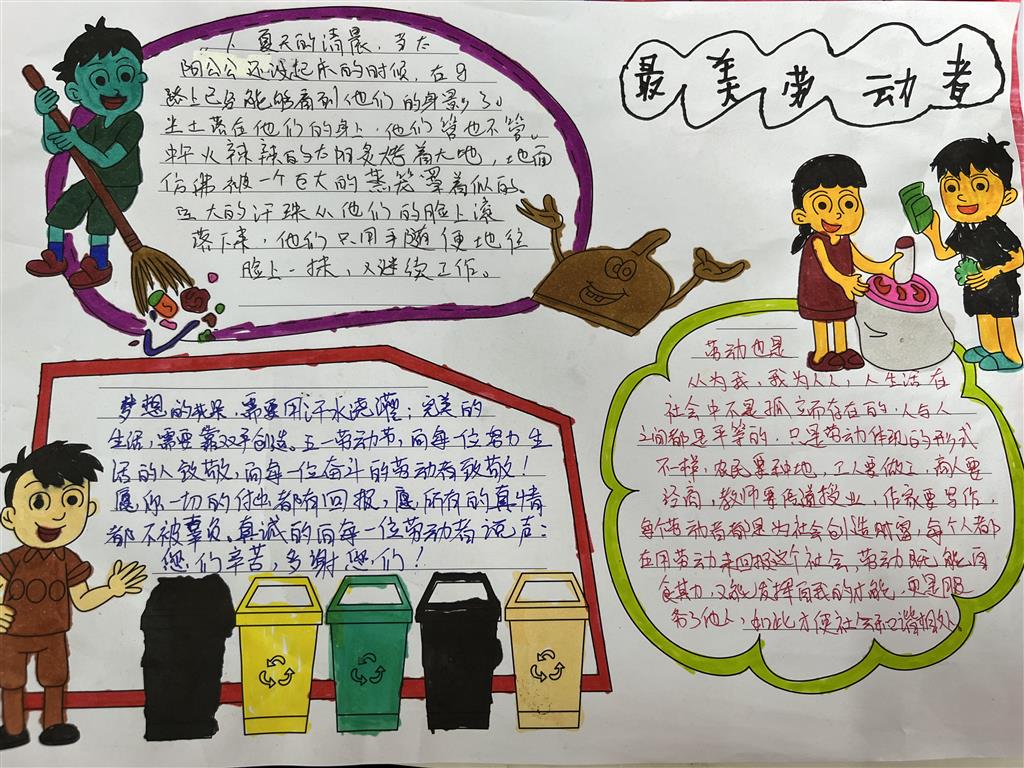 最美劳动者
夏天的清晨，当太
阳公公还没起床的时候，在马
路上已经能够看到他们的身影了。
尘土落在他们的身上，他们管也不管。
中午火辣辣的太阳炙烤着大地，地面
仿佛被一个巨大的蒸笼罩着似的。
豆大的汗珠从他们的脸上滚
落下来，他们只用手随便地往
脸上一抹，又继续工作。
梦想的成果，需要用汗水浇灌；完美的
生活，需要靠双手创造。五一劳动节，向每一位努力生
活的人致敬，向每一位奋斗的劳动者致敬！
愿你一切的付出都有回报，愿所有的真情
都不被辜负。真诚的向每一位劳动者说声：
您们辛苦，多谢您们！
劳动也是
人为我，我为人人，人生活在
社会中不是孤立而存在的，人与人
之间都是平等的，只是劳动体现的形式
不一样，农民要种地，工人要做工，商人要
经商，教师要传道授业，作家要写作，
每个劳动者都是为社会创造财富，每个人都
在用劳动来回报这个社会，劳动既能自
食其力，又能发挥自我的才能，更是服
务了他人，如此才使社会和谐相处